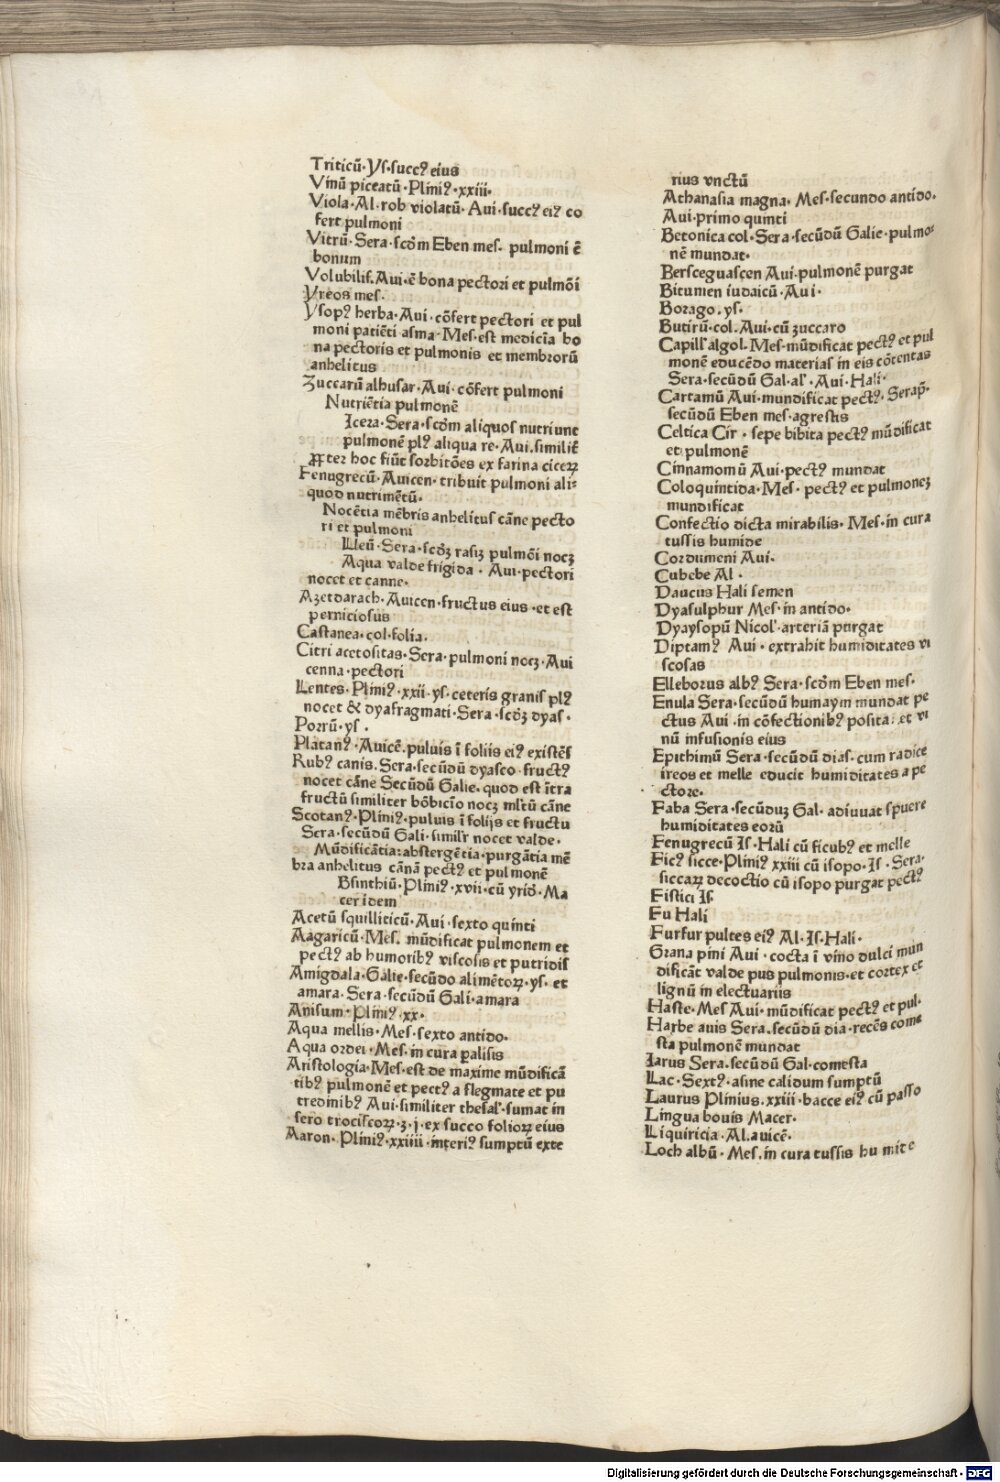 Triticū·Ys·succꝰ eius
Vinū piceatū·Pliniꝰ·xxiii·
Viola·Al·rob violatū·Aui·succꝰ eiꝰ co
fert pulmoni
Vitrū·Sera·scōm Eben mes· pulmoni ē
bonum
Volubilis·Aui·ē bona pectori et pulmōi
Yreos mes·
Ysopꝰ herba·Aui·cōfert pectori et pul
moni patiēti asma·Mes·est medicīa bo
na pectoris et pulmonis et membrorū
anhelitus
Zuccarū alhusar·Aui·cōfert pulmoni
Nutriētia pulmonē
Icera·Sera·scōm aliquos nutriunt
pulmonē plꝰ aliqua re·Aui·similiť
ꝓpter hoc fiūt sorbitōes ex farina ciceꝝ
Fenugrecū·Auicen·tribuit pulmoni ali⸗
quod nutrimētū·
Nocētia mēbris anhelitus cāne pecto
ri et pulmoni
Lleū·Sera·scōꝫ rasiꝫ pulmōi nocꝫ
Aqua valde frigida·Aui·pectori
nocet et canne·
Azetdarach·Auicen·fructus eius·et est
perniciosus
Castanea·col·folia·
Citri acetositas·Sera·pulmoni nocꝫ·Aui
cenna·pectori
Lentes·Pliniꝰ·xxii·ys·ceteris granis plꝰ
nocet & dyafragmati·Sera·scōꝫ dyas·
Porrū·ys·
Platanꝰ·Auicē·puluis ī foliis eiꝰ existēs
Rubꝰ canis·Sera·secūdū dyasco·fructꝰ
nocet cāne Secūdū Galie·quod est ītra
fructū similiter bōbicīo nocꝫ mītū cāne
Scotanꝰ·Pliniꝰ·puluis ī folijs et fructu
Sera·secūdū Gali·similr nocet valde·
Mūdificātia:abstergētia·purgātia mē
bra anhelitus cānā pectꝰ et pulmonē
Bsinthiū·Pliniꝰ·xvii·cū yrīd·Ma
cer idem
Acetū squilliticū·Aui·sexto quinti
Aagaricū·Mes·mūdificat pulmonem et
pectꝰ ab humoribꝰ viscosis et putridis
Amigdala·Galie·secūdo alimētoꝝ·ys·et
amara·Sera·secūdū Gali·amara
Anisum·Pliniꝰ·xx·
Aqua mellis·Mes·sexto antido·
Aqua ordei·Mes·in cura ꝑalisis
Aristologia·Mes·est de maxime mūdificā
tibꝰ pulmonē et pectꝰ a flegmate et pu
tredinibꝰ Aui·similiter thesal·sumat in
fero trociscoꝝ·ʒ·j·ex succo folioꝝ eius
Aaron·Pliniꝰ·xxiiii·interiꝰ sumptū exte
rius vnctū
Athanasia magna·Mes·secundo antido·
Aui·primo quinti
Betonica col·Sera·secūdū Galie·pulmo⸗
nē mundat·
Bersceguascen Aui·pulmonē purgat
Bitumen iudaicū·Aui·
Borago·ys·
Butirū·col·Aui·cū zuccaro
Capillꝰ algol·Mes·mūdificat pectꝰ et pul
monē educēdo materias in eis cōtentas
Sera·secūdū Gal·alꝰ·Aui·Hali·
Cartamū Aui·mundificat pectꝰ·Serap̄·
secūdū Eben mes·agrestis
Celtica Cir·sepe bibita pectꝰ mūdificat
et pulmonē
Cinnamomū Aui·pectꝰ mundat
Coloquintida·Mes·pectꝰ et pulmoneꝫ
mundificat
Confectio dicta mirabilis·Mes·in cura
tussis humide
Cordumeni Aui·
Cubebe Al·
Daucus Hali semen
Dyasulphur Mes·in antido·
Dyaysopū Nicol·arteriā purgat
Diptamꝰ Aui·extrahit humiditates vi
scosas
Elleborus albꝰ Sera·scōm Eben mes·
Enula Sera·secūdū humaym mundat pe
ctus Aui·in cōfectionibꝰ posita:et vi
nū infusionis eius
Epithimū Sera·secūdū dias·cum radice
ireos et melle educit humiditates a pe
ctore·
Faba Sera·secūduꝫ Gal·adiuuat spuere
humiditates eorū
Fenugrecū Is·Hali cū ficubꝰ et melle
Ficꝰ sicce·Pliniꝰ xxiii cū isopo·Is·Sera·
siccaꝝ decoctio cū isopo purgat pectꝰ
Fistici Is·
Fu Hali
Furfur pultes eiꝰ Al·Is·Hali·
Grana pini Aui·cocta ī vino dulci mun
dificāt valde pus pulmonis·et cortex et
lignū in electuariis
Haste·Mes Aui·mūdificat pectꝰ et pul·
Harbe auis Sera·secūdū dia·recēs come
sta pulmonē mundat
Iarus Sera·secūdū Gal·comesta
Llac·Sextꝰ·asine calidum sumptū
Laurus Plinius·xxiii·bacce eiꝰ cū passo
Lingua bouis Macer·
Lliquiricia·Al·auicē·
Loch albū·Mes·in cura tussis humite
Digitalisierung gefördert durch die Deutsche Forschungsgemeinschaft · DFG